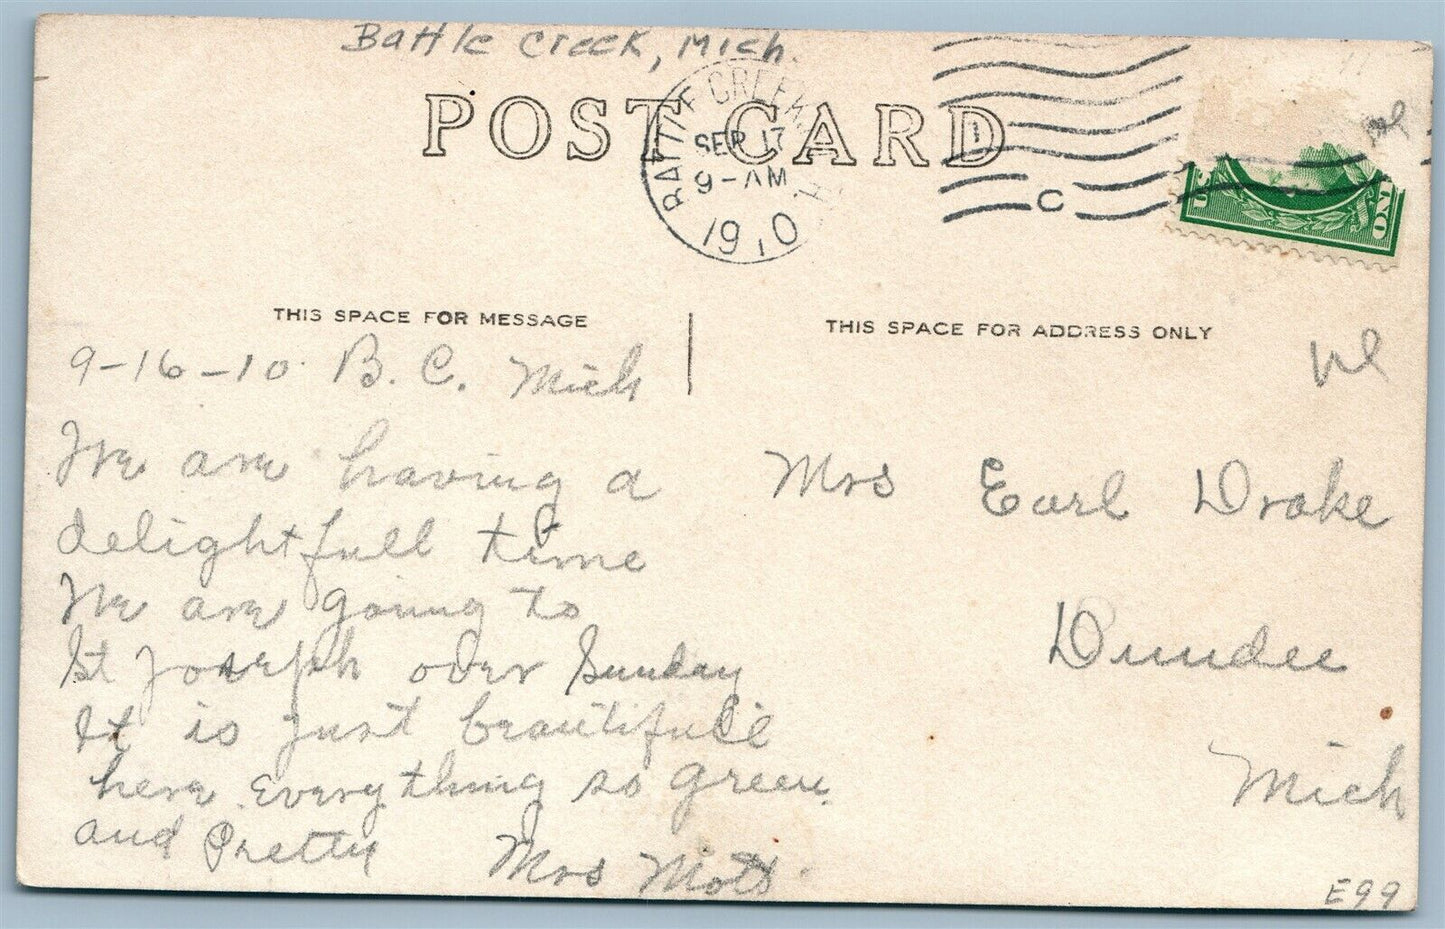 Battle Creek, Mich.
POST CARD
BATTLE CREEK,
SEP 17
9-AM
1910
C
ONE
THIS SPACE FOR MESSAGE
THIS SPACE FOR ADDRESS ONLY
9-16-10 B. C. Mich
We are having a
delightfull time
We are going to
St Joseph over Sunday
It is just beautifull
here everything so green
and Pretty Mrs Motts
Mrs Earl Drake
Dundee
Mich
E99